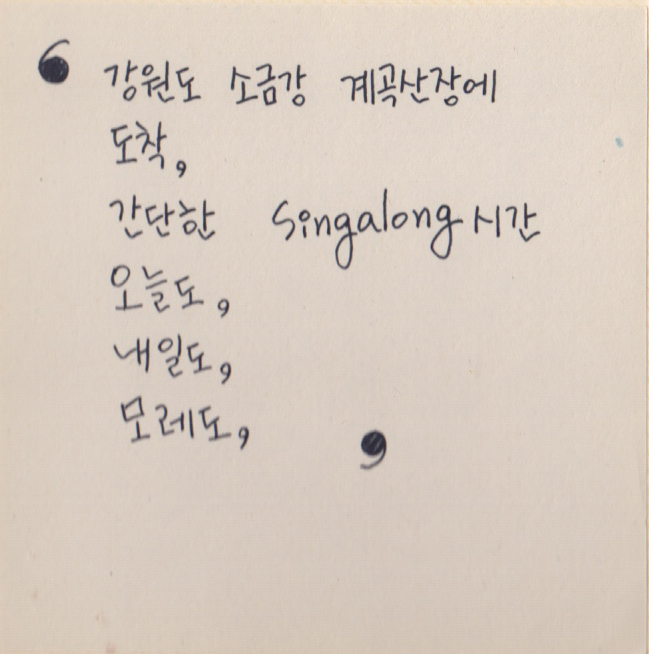 ‘ 강원도 소금강 계곡산장에
도착,
간단한 Singalong 시간
오늘도,
내일도,
모레도, ’